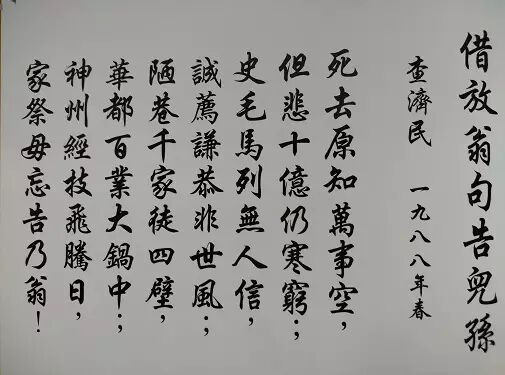 借放翁句告兒孫
查濟民 一九八八年春
死去原知萬事空，
但悲十億仍寒窮；
史毛馬列無人信，
誠薦謙恭非世風；
陋巷千家徒四壁，
華都百業大鍋中；
神州經技飛騰日，
家祭毋忘告乃翁！